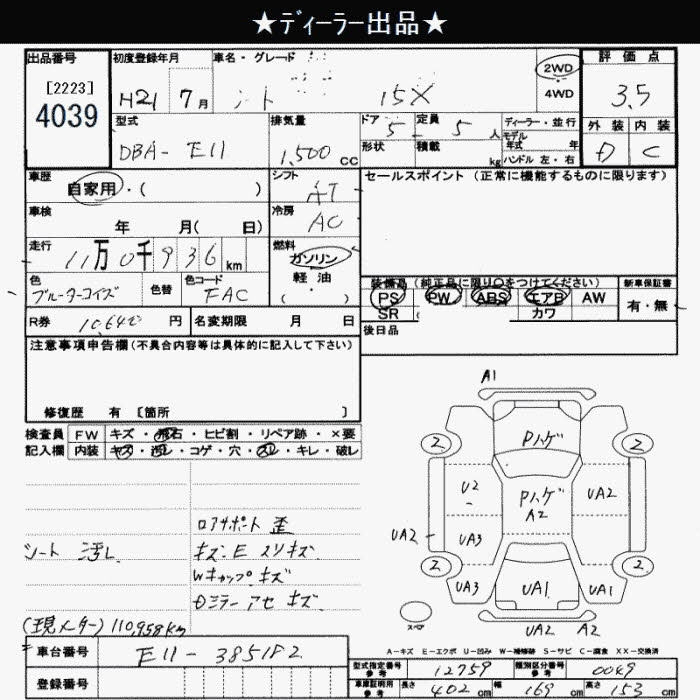 ★ディーラー出品★
出品番号
[2223]
4039
初度登録年月
H21 7月
車名・グレード
15X
2WD
4WD
評価点
3.5
外装 内装
D C
型式
DBA- E11
排気量
1,500 CC
ドア
5
定員
5 人
形状
積載
kg
ディーラー・並行
モデル
年式 年
ハンドル 左・右
車歴
自家用・( )
シフト
AT
セールスポイント (正常に機能するものに限ります)
車検
年 月( 日)
冷房
AC
走行
11万0千936km
燃料
ガソリン
軽油
( )
色
ブルーターコイズ
色替
色コード
FAC
装備品(純正品に限り○をつけてください)
PS PW ABS エアB AW
SR カワ
新車保証書
有・無
R券 10,640円
名変期限 月 日
後日品
注意事項申告欄(不具合内容等は具体的に記入して下さい)
修復歴 有 〔箇所 〕
検査員
記入欄
FW キズ・飛石・ヒビ割・リペア跡・×要
内装 キズ・汚レ・コゲ・穴・スレ・キレ・破レ
シート 汚レ
ロアサポート 歪
キズ・E スリキズ
Wキャップ キズ
Dミラー アセ キズ
(現メーター) 110,958km
車台番号 E11-385182
登録番号
A1
2 Pハゲ 2
U2 Pハゲ UA2
A2
UA2 UA3
2 2
UA3 UA1 UA1
スペア
UA2 A2
A-キズ E-エクボ U-凹み W-補修跡 S-サビ C-腐食 XX-交換済
型式指定番号
参考
12759
類別区分番号
参考
0049
車庫証明用
参考
長さ 402cm 幅 169cm 高さ 153cm